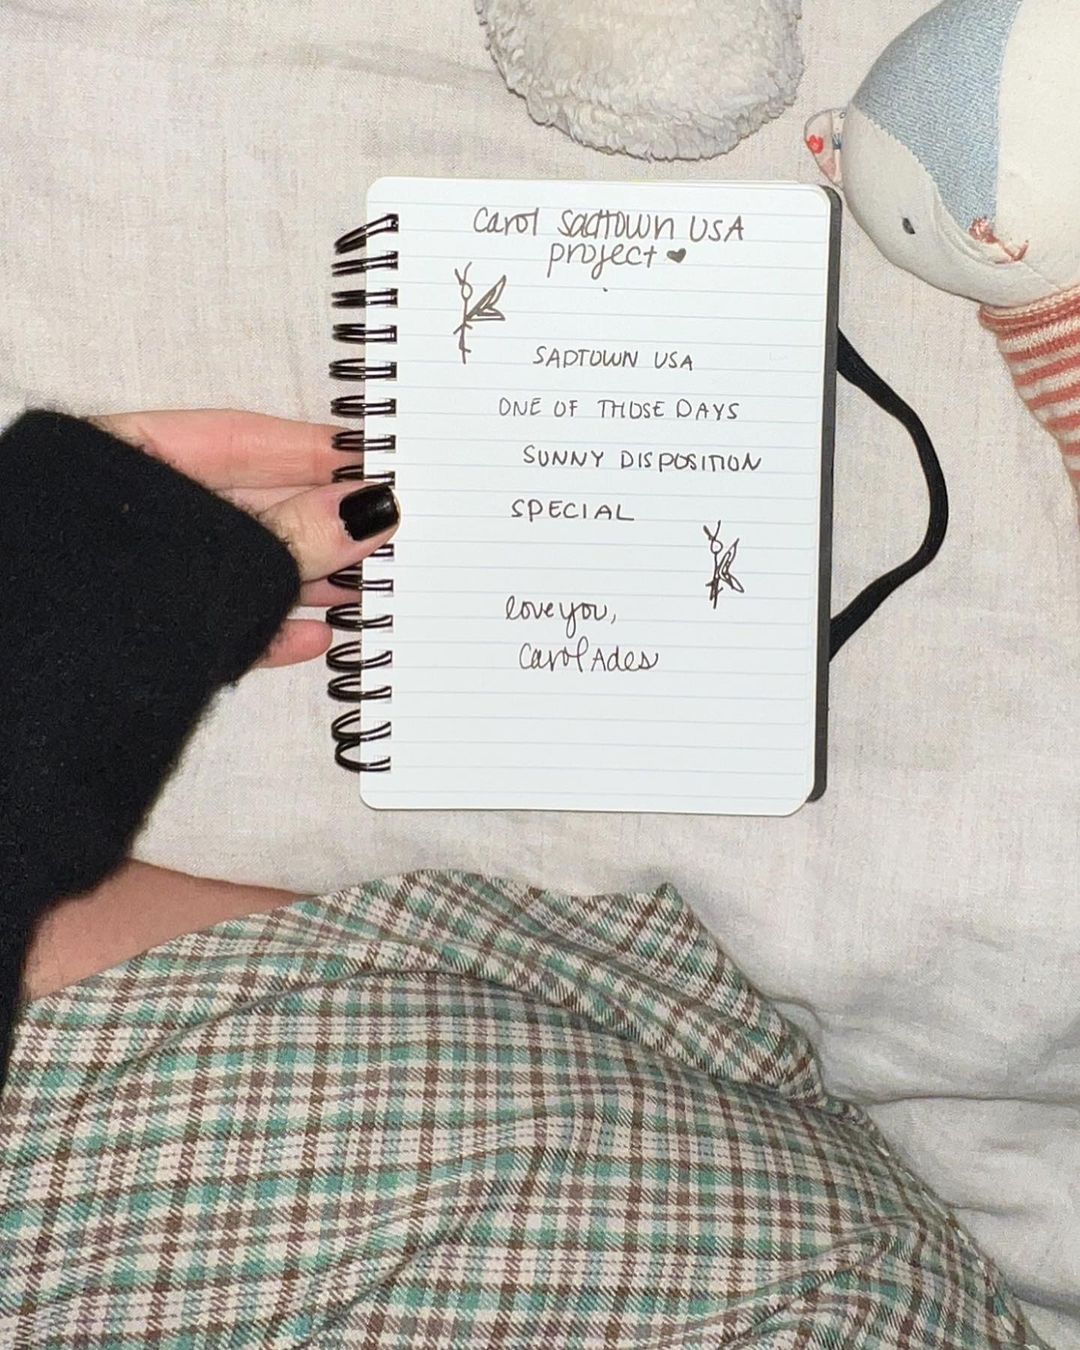 Carol Sadtown USA
project ♥
SADTOWN USA
ONE OF THOSE DAYS
SUNNY DISPOSITION
SPECIAL
love you,
Carol Ades